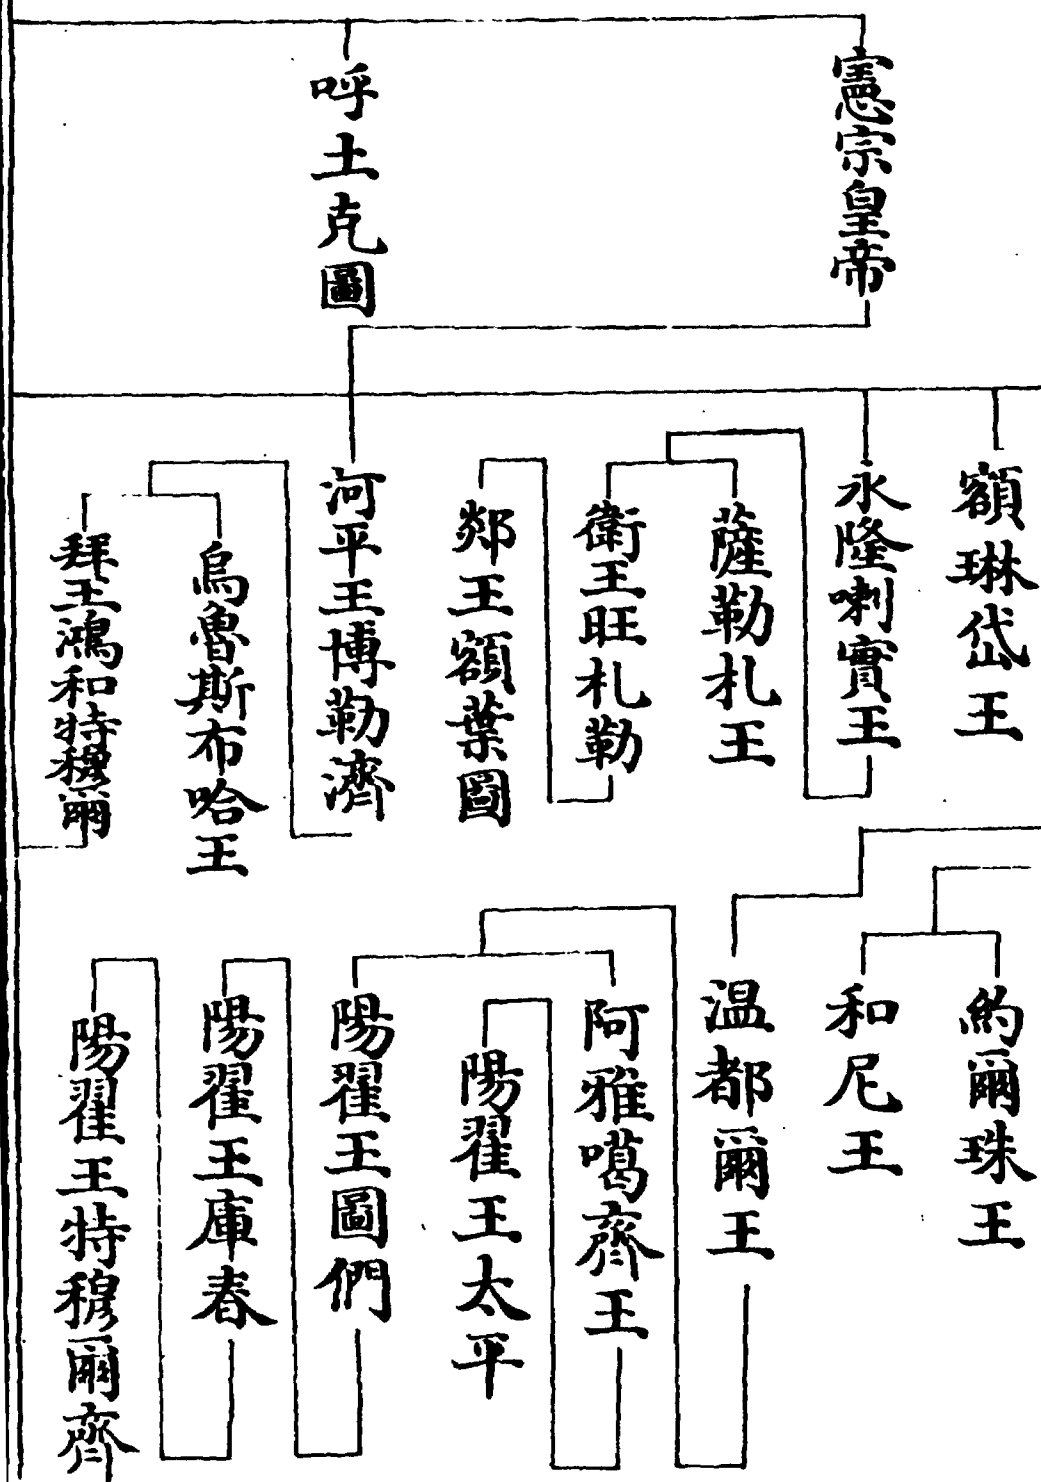 憲宗皇帝
呼土克圖
額琳岱王
永隆喇實王
薩勒札王
衛王旺札勒
郯王額葉圖
河平王博勒濟
烏魯斯布哈王
拜王鴻和特穆爾
約爾珠王
和尼王
温都爾王
阿雅噶齊王
陽翟王太平
陽翟王圖們
陽翟王庫春
陽翟王特穆爾齊